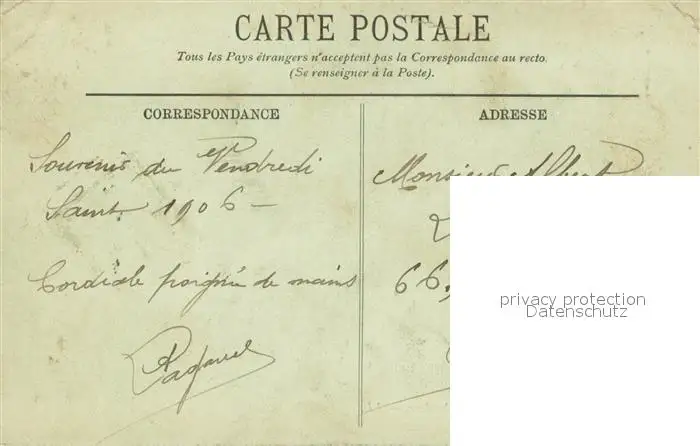 CARTE POSTALE
Tous les Pays étrangers n'acceptent pas la Correspondance au recto.
(Se renseigner à la Poste).
CORRESPONDANCE
ADRESSE
Souvenir du Vendredi
Saint. 1906 -
Cordiale poignée de mains
Monsieur Albert
66,
privacy protection
Datenschutz